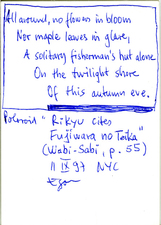 All around, no flowers in bloom
Nor maple leaves in glare,
A solitary fisherman's hut alone
On the twilight shore
Of this autumn eve.
Polaroid "Rikyu cites
Fujiwara no Teika"
(Wabi-Sabi, p. 55)
11 IX 97 NYC